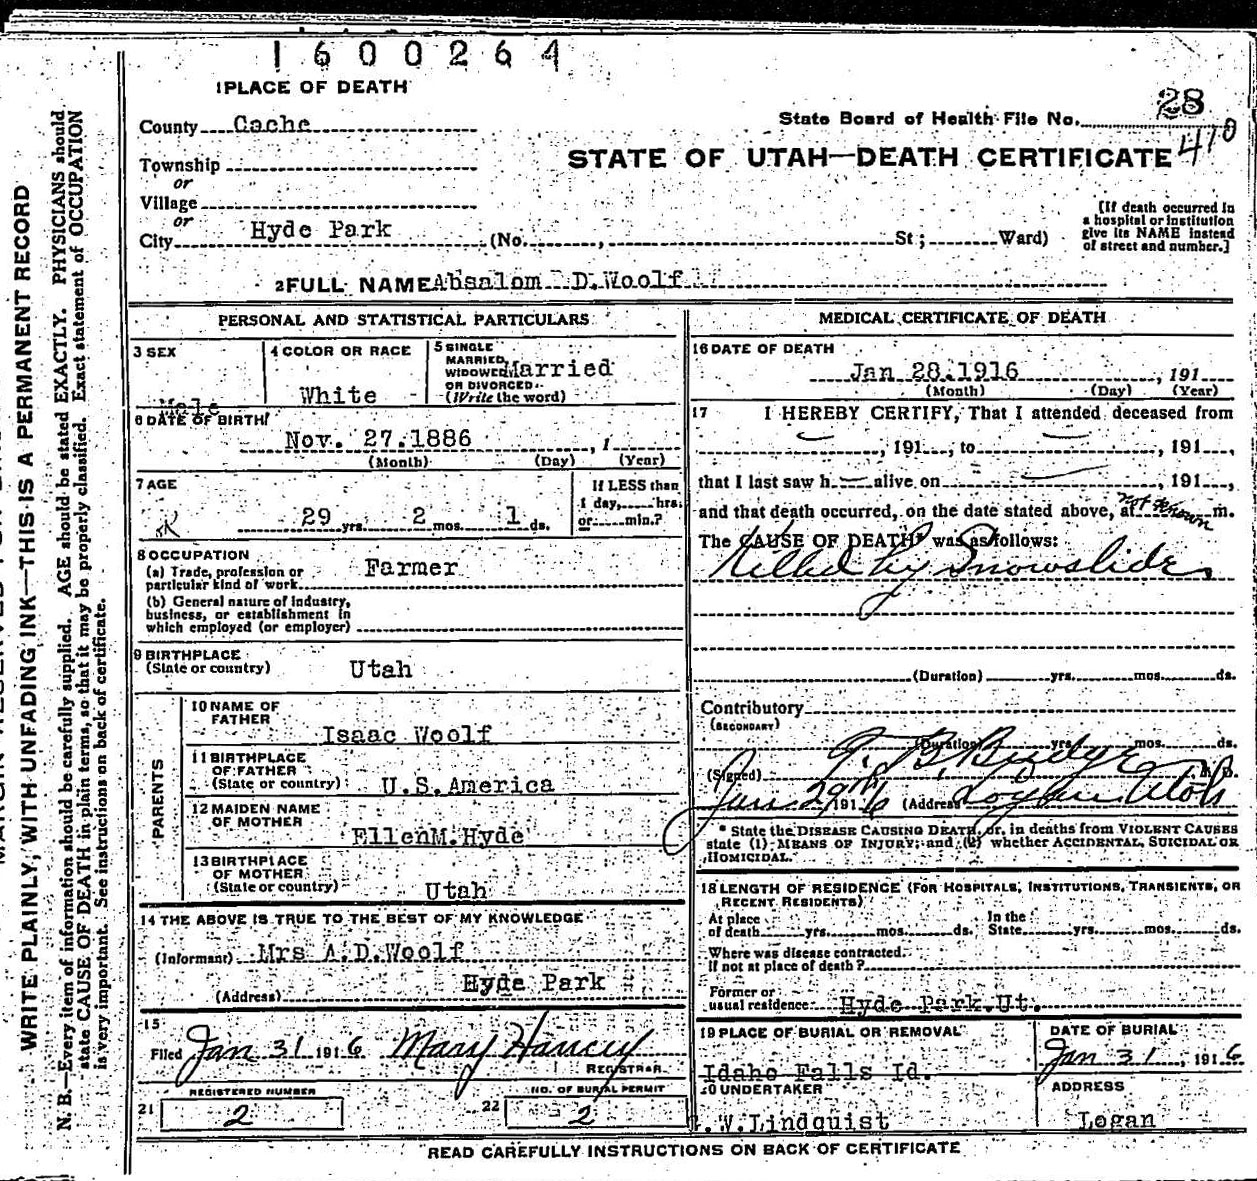 1600264
1 PLACE OF DEATH
28
County Cache
State Board of Health File No.
410
Township
STATE OF UTAH—DEATH CERTIFICATE
or
Village
or
City Hyde Park (No. , St; Ward)
[If death occurred in
a hospital or institution
give its NAME instead
of street and number.]
2 FULL NAME Absalom D. Woolf
PERSONAL AND STATISTICAL PARTICULARS
3 SEX
Male
4 COLOR OR RACE
White
5 SINGLE
MARRIED
WIDOWED
OR DIVORCED
(Write the word)
Married
6 DATE OF BIRTH
Nov. 27. 1886 , 1
(Month) (Day) (Year)
7 AGE
29 yrs. 2 mos. 1 ds.
If LESS than
1 day, hrs.
or min.?
8 OCCUPATION
(a) Trade, profession or
particular kind of work
Farmer
(b) General nature of industry,
business, or establishment in
which employed (or employer)
9 BIRTHPLACE
(State or country) Utah
PARENTS
10 NAME OF
FATHER
Isaac Woolf
11 BIRTHPLACE
OF FATHER
(State or country) U.S.America
12 MAIDEN NAME
OF MOTHER
EllenM.Hyde
13 BIRTHPLACE
OF MOTHER
(State or country) Utah
14 THE ABOVE IS TRUE TO THE BEST OF MY KNOWLEDGE
(Informant) Mrs A.D.Woolf
(Address) Hyde Park
15
Filed Jan 31 1916 Mary
REGISTRAR
REGISTERED NUMBER
21 2
NO. OF BURIAL PERMIT
22 2
MEDICAL CERTIFICATE OF DEATH
16 DATE OF DEATH
Jan 28.1916 , 191
(Month) (Day) (Year)
17 I HEREBY CERTIFY, That I attended deceased from
, 191 , to , 191 ,
that I last saw h alive on , 191 ,
and that death occurred, on the date stated above, at not known m.
The CAUSE OF DEATH* was as follows:
Killed by Snowslide
(Duration) yrs. mos. ds.
Contributory
(SECONDARY)
(Duration) yrs. mos. ds.
(Signed) T. B. Budge M. D.
Jan 29th 1916 (Address) Logan Utah
* State the DISEASE CAUSING DEATH, or, in deaths from VIOLENT CAUSES
state (1) MEANS OF INJURY; and (2) whether ACCIDENTAL, SUICIDAL OR
HOMICIDAL.
18 LENGTH OF RESIDENCE (FOR HOSPITALS, INSTITUTIONS, TRANSIENTS, OR
RECENT RESIDENTS)
At place
of death yrs. mos. ds.
In the
State yrs. mos. ds.
Where was disease contracted.
If not at place of death?
Former or
usual residence Hyde Park.Ut.
19 PLACE OF BURIAL OR REMOVAL
Idaho Falls Id.
DATE OF BURIAL
Jan 31 , 1916
20 UNDERTAKER
.W.Lindquist
ADDRESS
Logan
READ CAREFULLY INSTRUCTIONS ON BACK OF CERTIFICATE
WRITE PLAINLY, WITH UNFADING INK—THIS IS A PERMANENT RECORD
N. B.—Every item of information should be carefully supplied. AGE should be stated EXACTLY. PHYSICIANS should
state CAUSE OF DEATH in plain terms, so that it may be properly classified. Exact statement of OCCUPATION
is very important. See instructions on back of certificate.